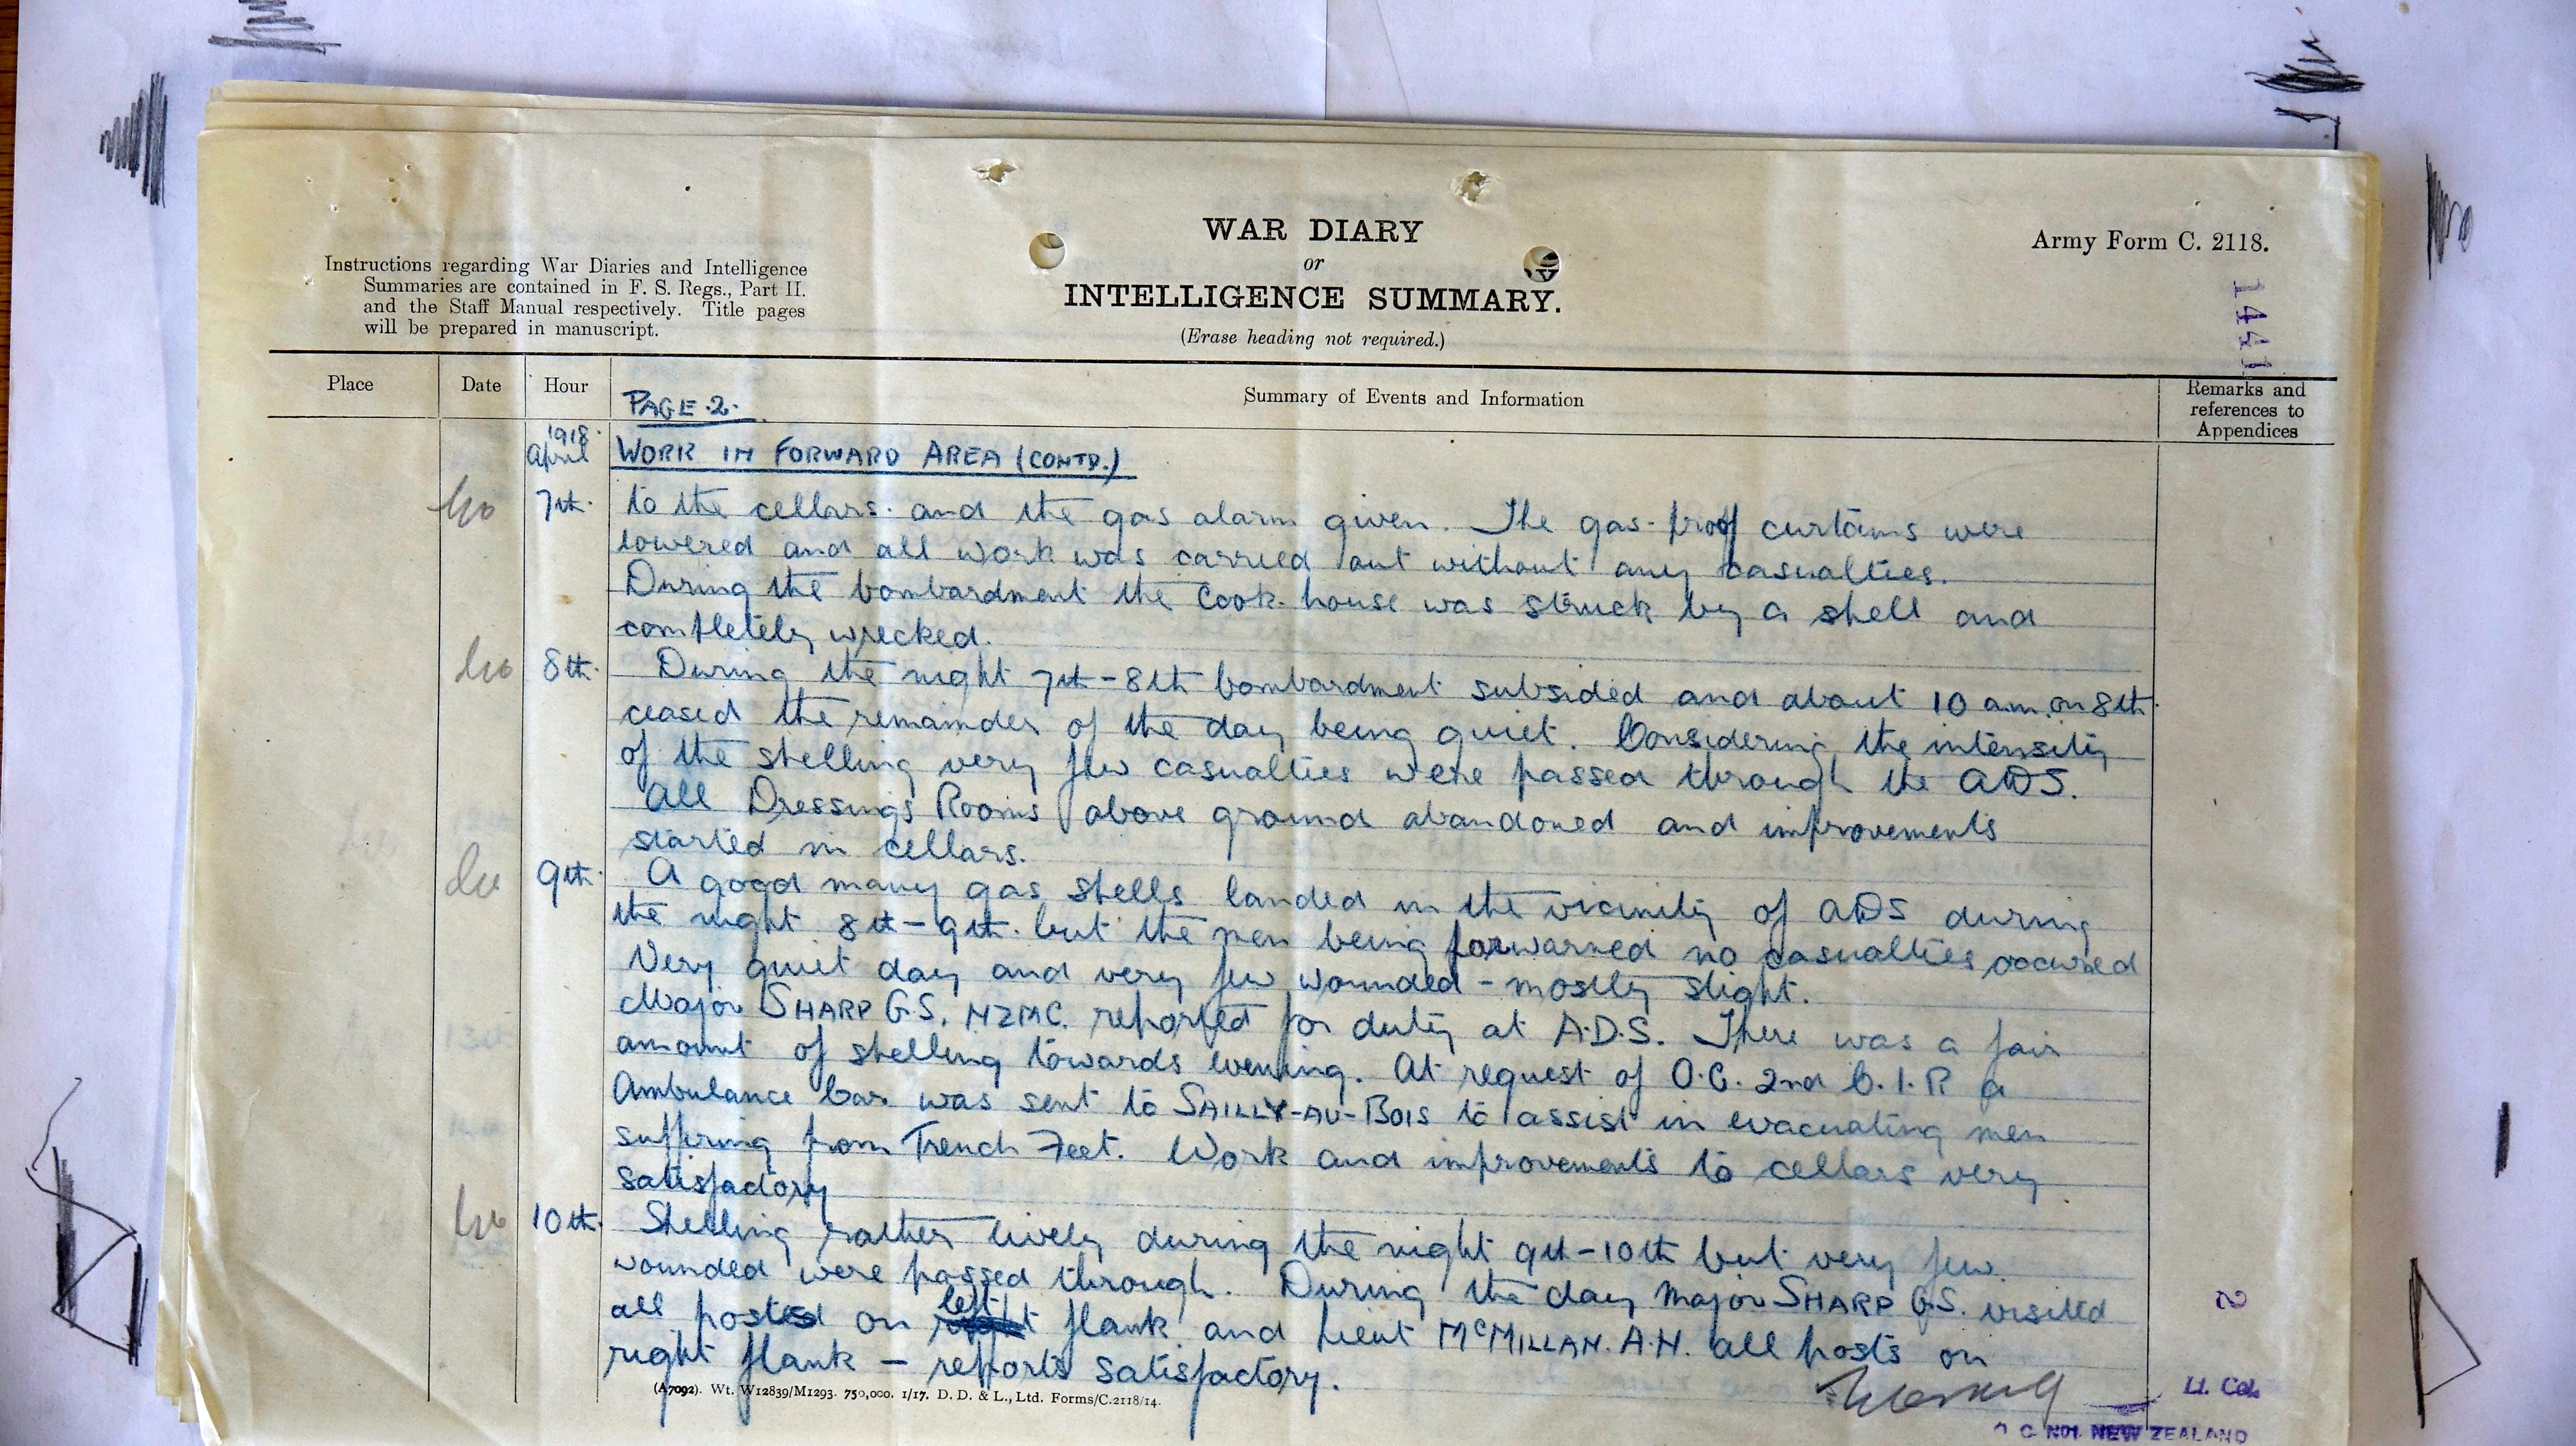 WAR DIARY
or
INTELLIGENCE SUMMARY.
(Erase heading not required.)
Army Form C. 2118.
Instructions regarding War Diaries and Intelligence
Summaries are contained in F. S. Regs., Part II.
and the Staff Manual respectively. Title pages
will be prepared in manuscript.
Place
Date
Hour
Summary of Events and Information
Remarks and
references to
Appendices
PAGE 2.
1918.
April
WORK IN FORWARD AREA (CONTD.)
7th. to the cellars. and the gas alarm given. The gas-proof curtains were
lowered and all work was carried out without any casualties.
During the bombardment the Cook-house was struck by a shell and
completely wrecked.
8th. During the night 7th-8th bombardment subsided and about 10 am. on 8th.
ceased the remainder of the day being quiet. Considering the intensity
of the shelling very few casualties were passed through the ADS.
All Dressings Rooms above ground abandoned and improvements
started in cellars.
9th. A good many gas shells landed in the vicinity of ADS during
the night 8th-9th. but the men being forwarned no casualties occurred
Very quiet day and very few wounded - mostly slight.
Major SHARP G.S. NZMC. reported for duty at A.D.S. There was a fair
amount of shelling towards evening. At request of O.C. 2nd C.I.R a
Ambulance Car was sent to SAILLY-AU-BOIS to assist in evacuating men
suffring from Trench Feet. Work and improvements to cellars very
satisfactory
10th. Shelling rather lively during the night 9th-10th but very few
wounded were passed through. During the day Major SHARP G.S. visited
all posts on left flank and Lieut McMILLAN. A.H. all posts on
right flank - reports satisfactory.
(A7092). Wt. W12839/M1293. 750,000. 1/17. D. D. & L., Ltd. Forms/C.2118/14.
2
Lt. Col.
O C No1 NEW ZEALAND